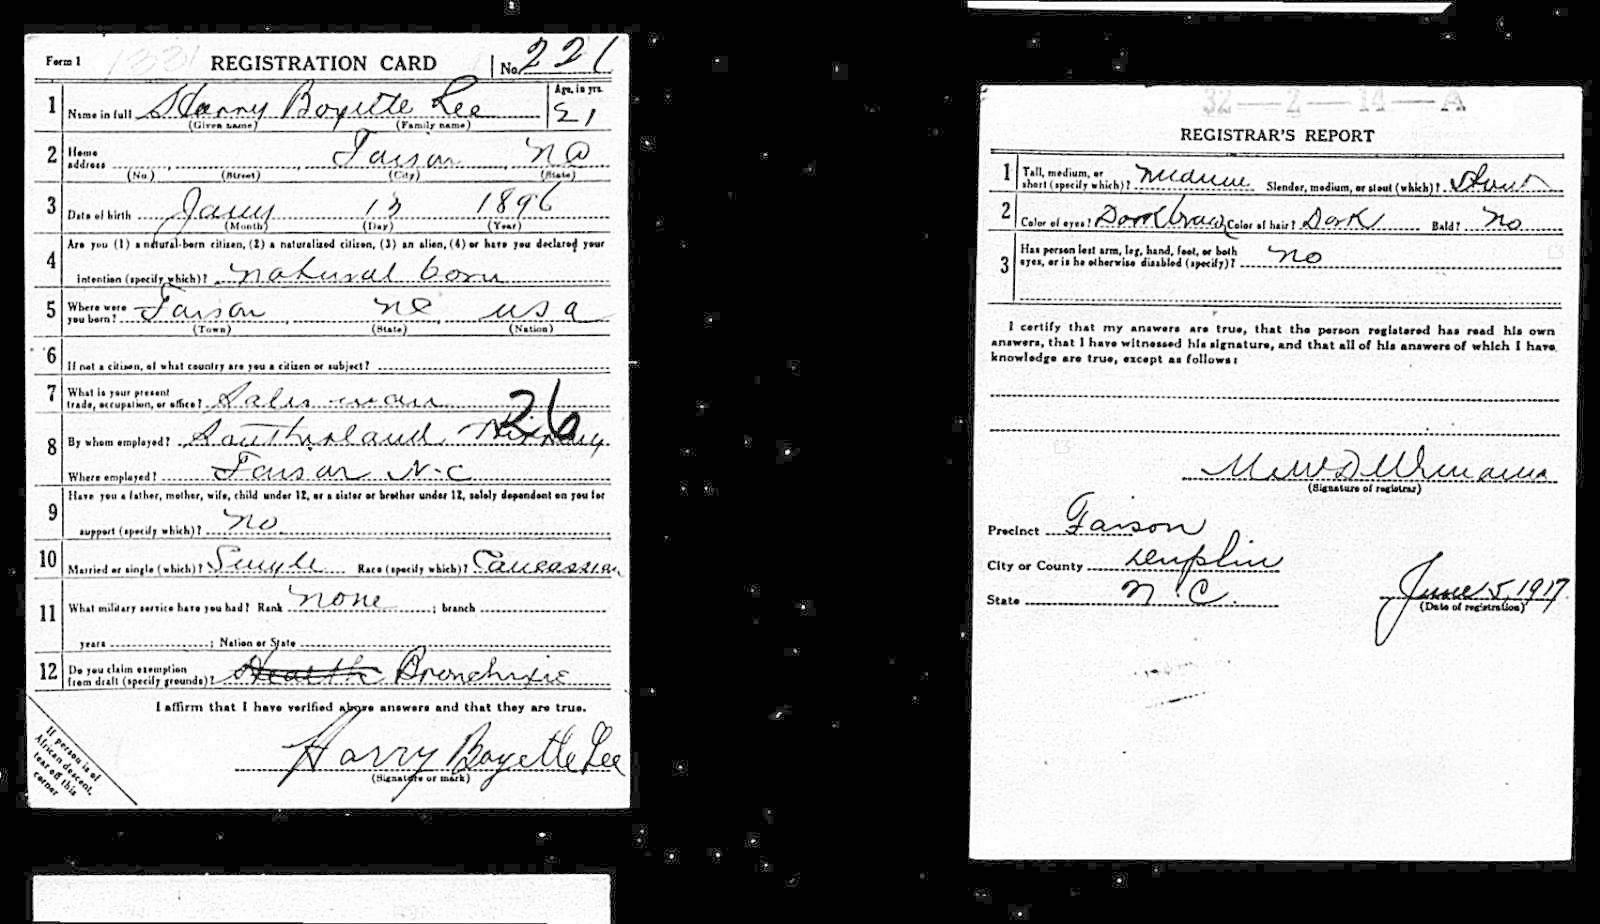 Form 1 1331 REGISTRATION CARD No. 221
1 Name in full Harry Boyette Lee Age, in yrs. 21
(Given name) (Family name)
2 Home address Faison NC
(No.) (Street) (City) (State)
3 Date of birth Jany 13 1896
(Month) (Day) (Year)
4 Are you (1) a natural-born citizen, (2) a naturalized citizen, (3) an alien, (4) or have you declared your
intention (specify which)? natural born
5 Where were you born? Faison NC USA
(Town) (State) (Nation)
6 If not a citizen, of what country are you a citizen or subject?
7 What is your present trade, occupation, or office? Salesman
26
8 By whom employed? Southerland
Where employed? Faison N.C
9 Have you a father, mother, wife, child under 12, or a sister or brother under 12, solely dependent on you for
support (specify which)? no
10 Married or single (which)? Single Race (specify which)? Caucassian
11 What military service have you had? Rank none ; branch
years ; Nation or State
12 Do you claim exemption from draft (specify grounds)? Health Bronchitis
I affirm that I have verified above answers and that they are true.
Harry Boyette Lee
(Signature or mark)
If person is of
African descent,
tear off this
corner
32—2—14—A
REGISTRAR'S REPORT
1 Tall, medium, or short (specify which)? medium Slender, medium, or stout (which)? Stout
2 Color of eyes? Dark brown Color of hair? Dark Bald? No
3 Has person lost arm, leg, hand, foot, or both eyes, or is he otherwise disabled (specify)? No
I certify that my answers are true, that the person registered has read his own
answers, that I have witnessed his signature, and that all of his answers of which I have
knowledge are true, except as follows:
(Signature of registrar)
Precinct Faison
City or County Duplin
State N.C.
June 5, 1917
(Date of registration)